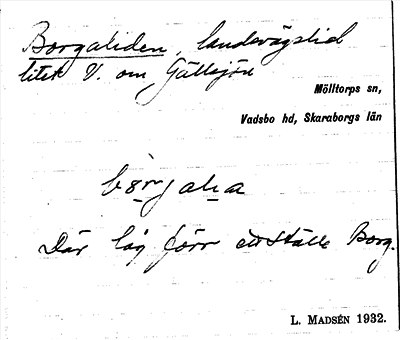 Borgaliden, landsvägslid
litet V. om Gällsjön
Mölltorps sn,
Vadsbo hd, Skaraborgs län
Där låg förr ett ställe Borg.
L. MADSÉN 1932.